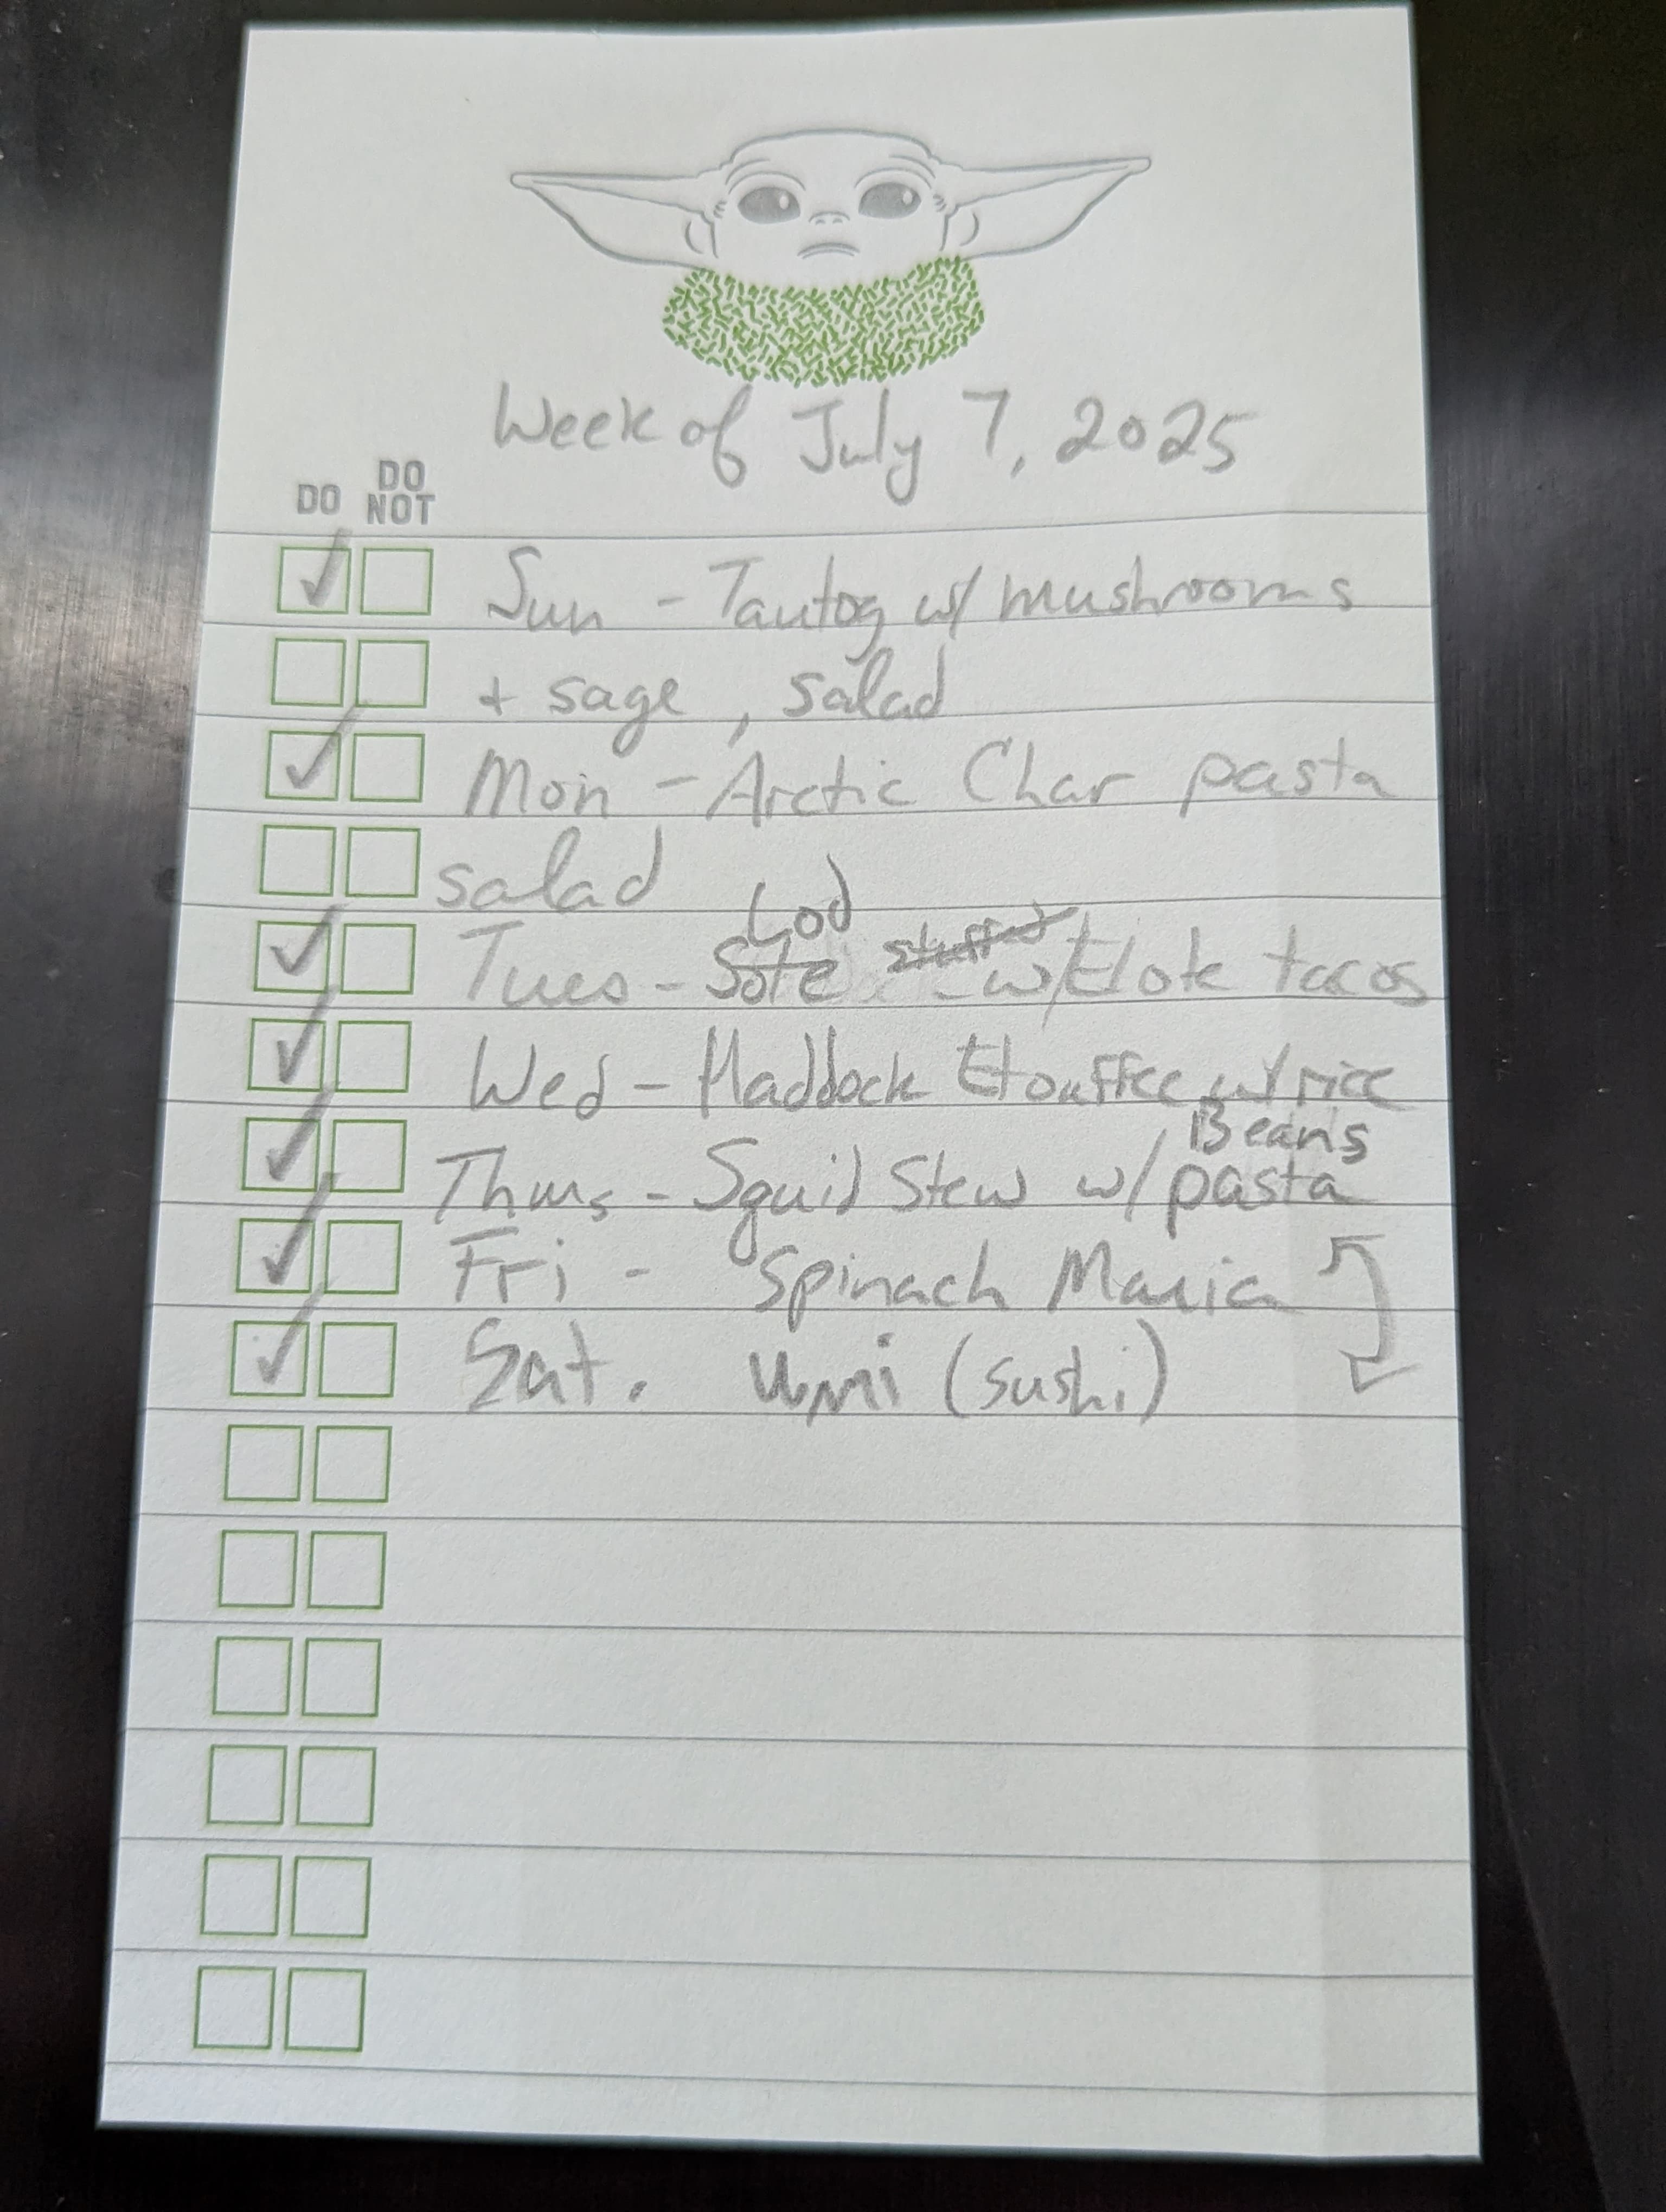 Week of July 7, 2025
DO DO NOT
Sun - Tautog w/ mushrooms
+ sage, salad
Mon - Arctic Char pasta
salad
Cod
Tues - Sole stuffed w/ Elote tacos
Wed - Haddock Etouffee w/ rice
Beans
Thurs - Squid Stew w/ pasta
Fri - Spinach Maria
Sat. Umi (sushi)